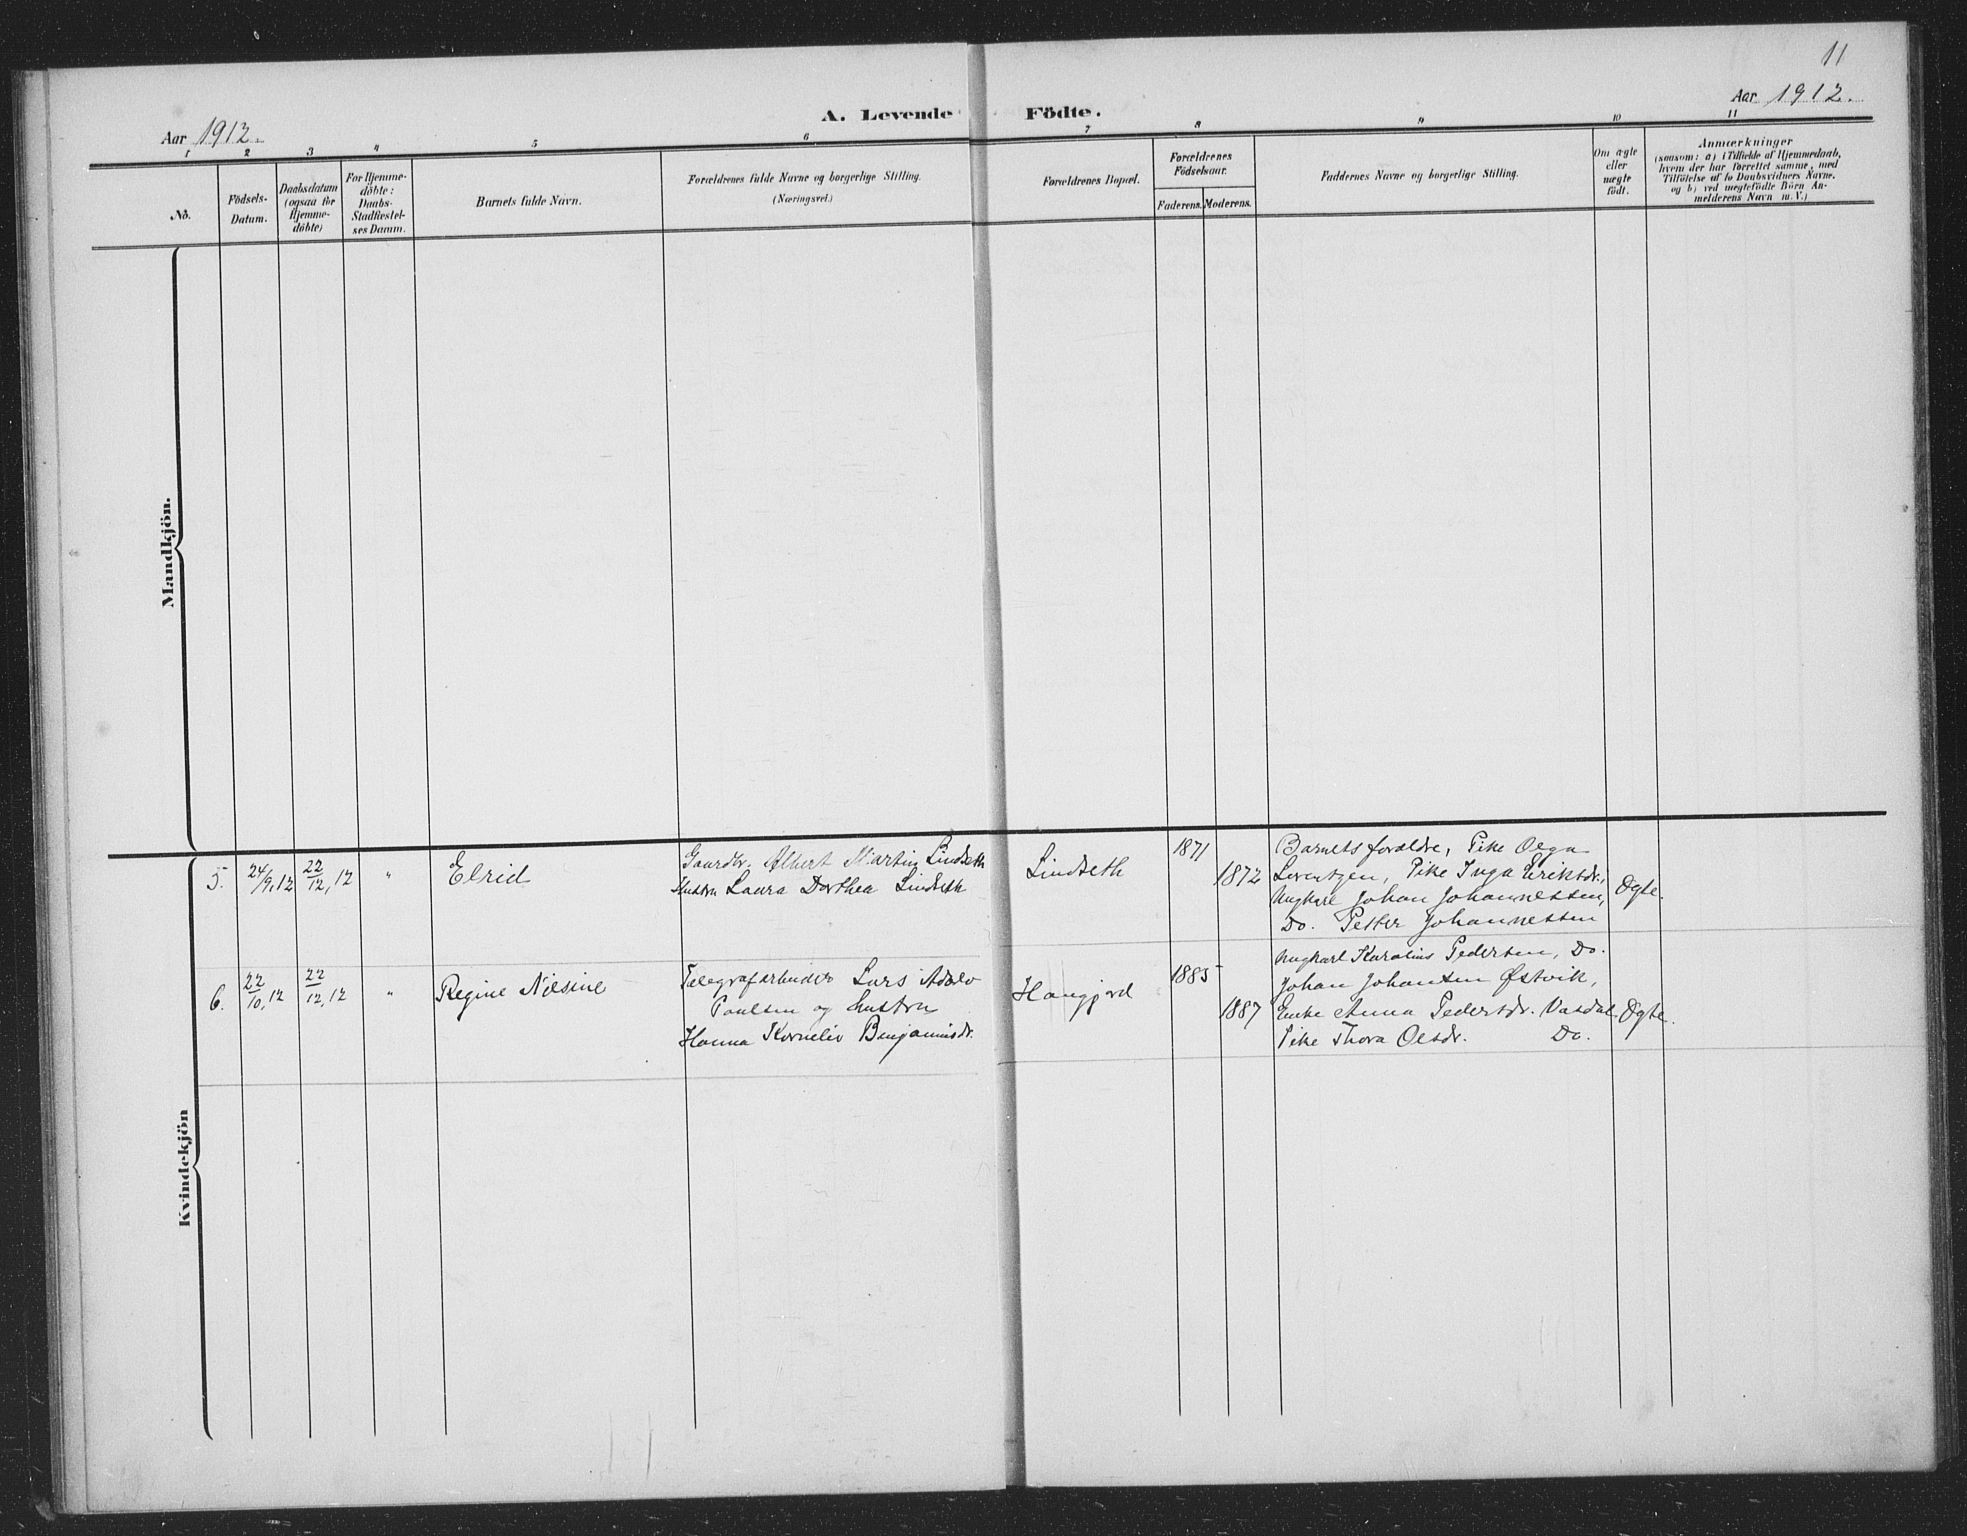 11
Aar 1912.
A. Levende Födte.
Aar 1912.
1 2 3 4 5 6 7 8 9 10 11
No.
Födsels-
Datum.
Daabsdatum
(ogsaa for
Hjemme-
döbte)
For Hjemme-
döbte:
Daabs-
Stadfæstel-
ses Datum.
Barnets fulde Navn.
Forældrenes fulde Navne og borgerlige Stilling.
(Næringsvei.)
Forældrenes Bopæl.
Forældrenes
Födselsaar.
Faderens. Moderens.
Faddernes Navne og borgerlige Stilling.
Om ægte
eller
uægte
födt.
Anmærkninger
(saasom: a) i Tilfælde af Hjemmedaab,
hvem der har forrettet samme, med
Tilföielse af to Daabsvidners Navne,
og b) ved uægtefödte Börn An-
melderens Navn m. V.)
Mandkjön.
Kvindekjön
5. 24/9, 12 22/12, 12 "
Elrid
Gaardbr. Albert Martin Lindseth
Hustru Laura Dorthea Lindseth
Lindseth
1871
1872
Barnets forældre, Pike Olga
Lorentzen, Pike Inga Eriksdr.,
Ungkarl Johan Johannessen,
Do. Petter Johannessen
Ægte.
6. 22/10, 12 22/12, 12 "
Regine Nilsine
Telegrafarbeider Lars Adolv
Paulsen og Hustru
Hanna Kornelie Benjaminsdr.
Haugjord
1885
1887
Ungkarl Karolius Pedersen, Do.
Johan Johansen Østvik,
Enke Anna Pedersdr. Vasdal
Pike Thora Olsdr. Do.
Ægte.